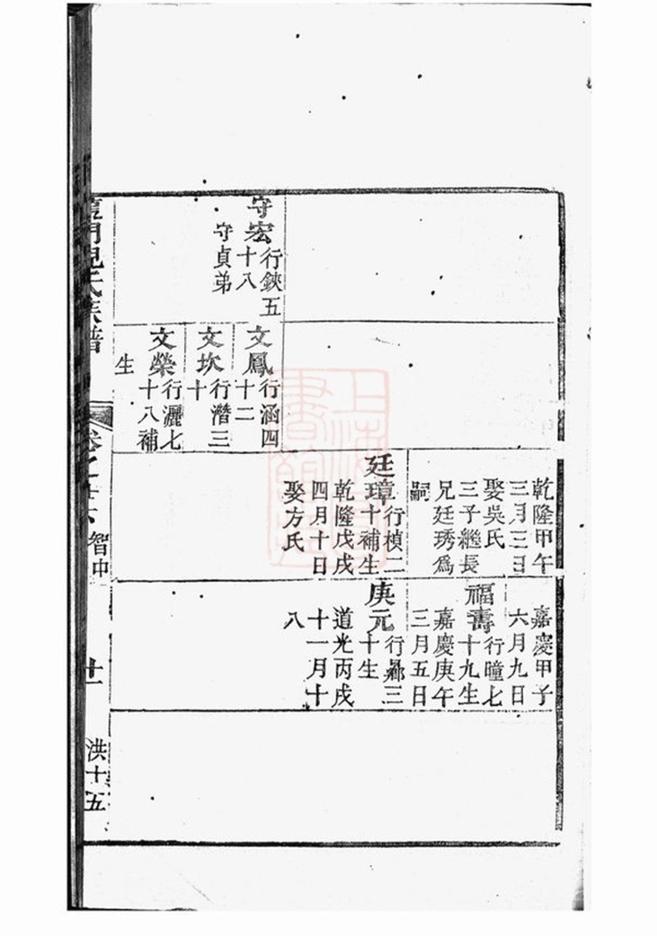 守宏行鋏五
十八
守貞弟
文鳳行涵四
十二
文坎行潛三
十
文榮行灑七
十八補
生
乾隆甲午
三月三日
娶吳氏
三子繼長
兄廷琇爲
嗣
廷璋行楨二
十補生
乾隆戊戌
四月十日
娶方氏
嘉慶甲子
六月九日
福壽行曈七
十九生
嘉慶庚午
三月五日
庚元行三
十生
道光丙戌
十一月十
八
門氏族譜
卷之十六
智中
十一
洪十五